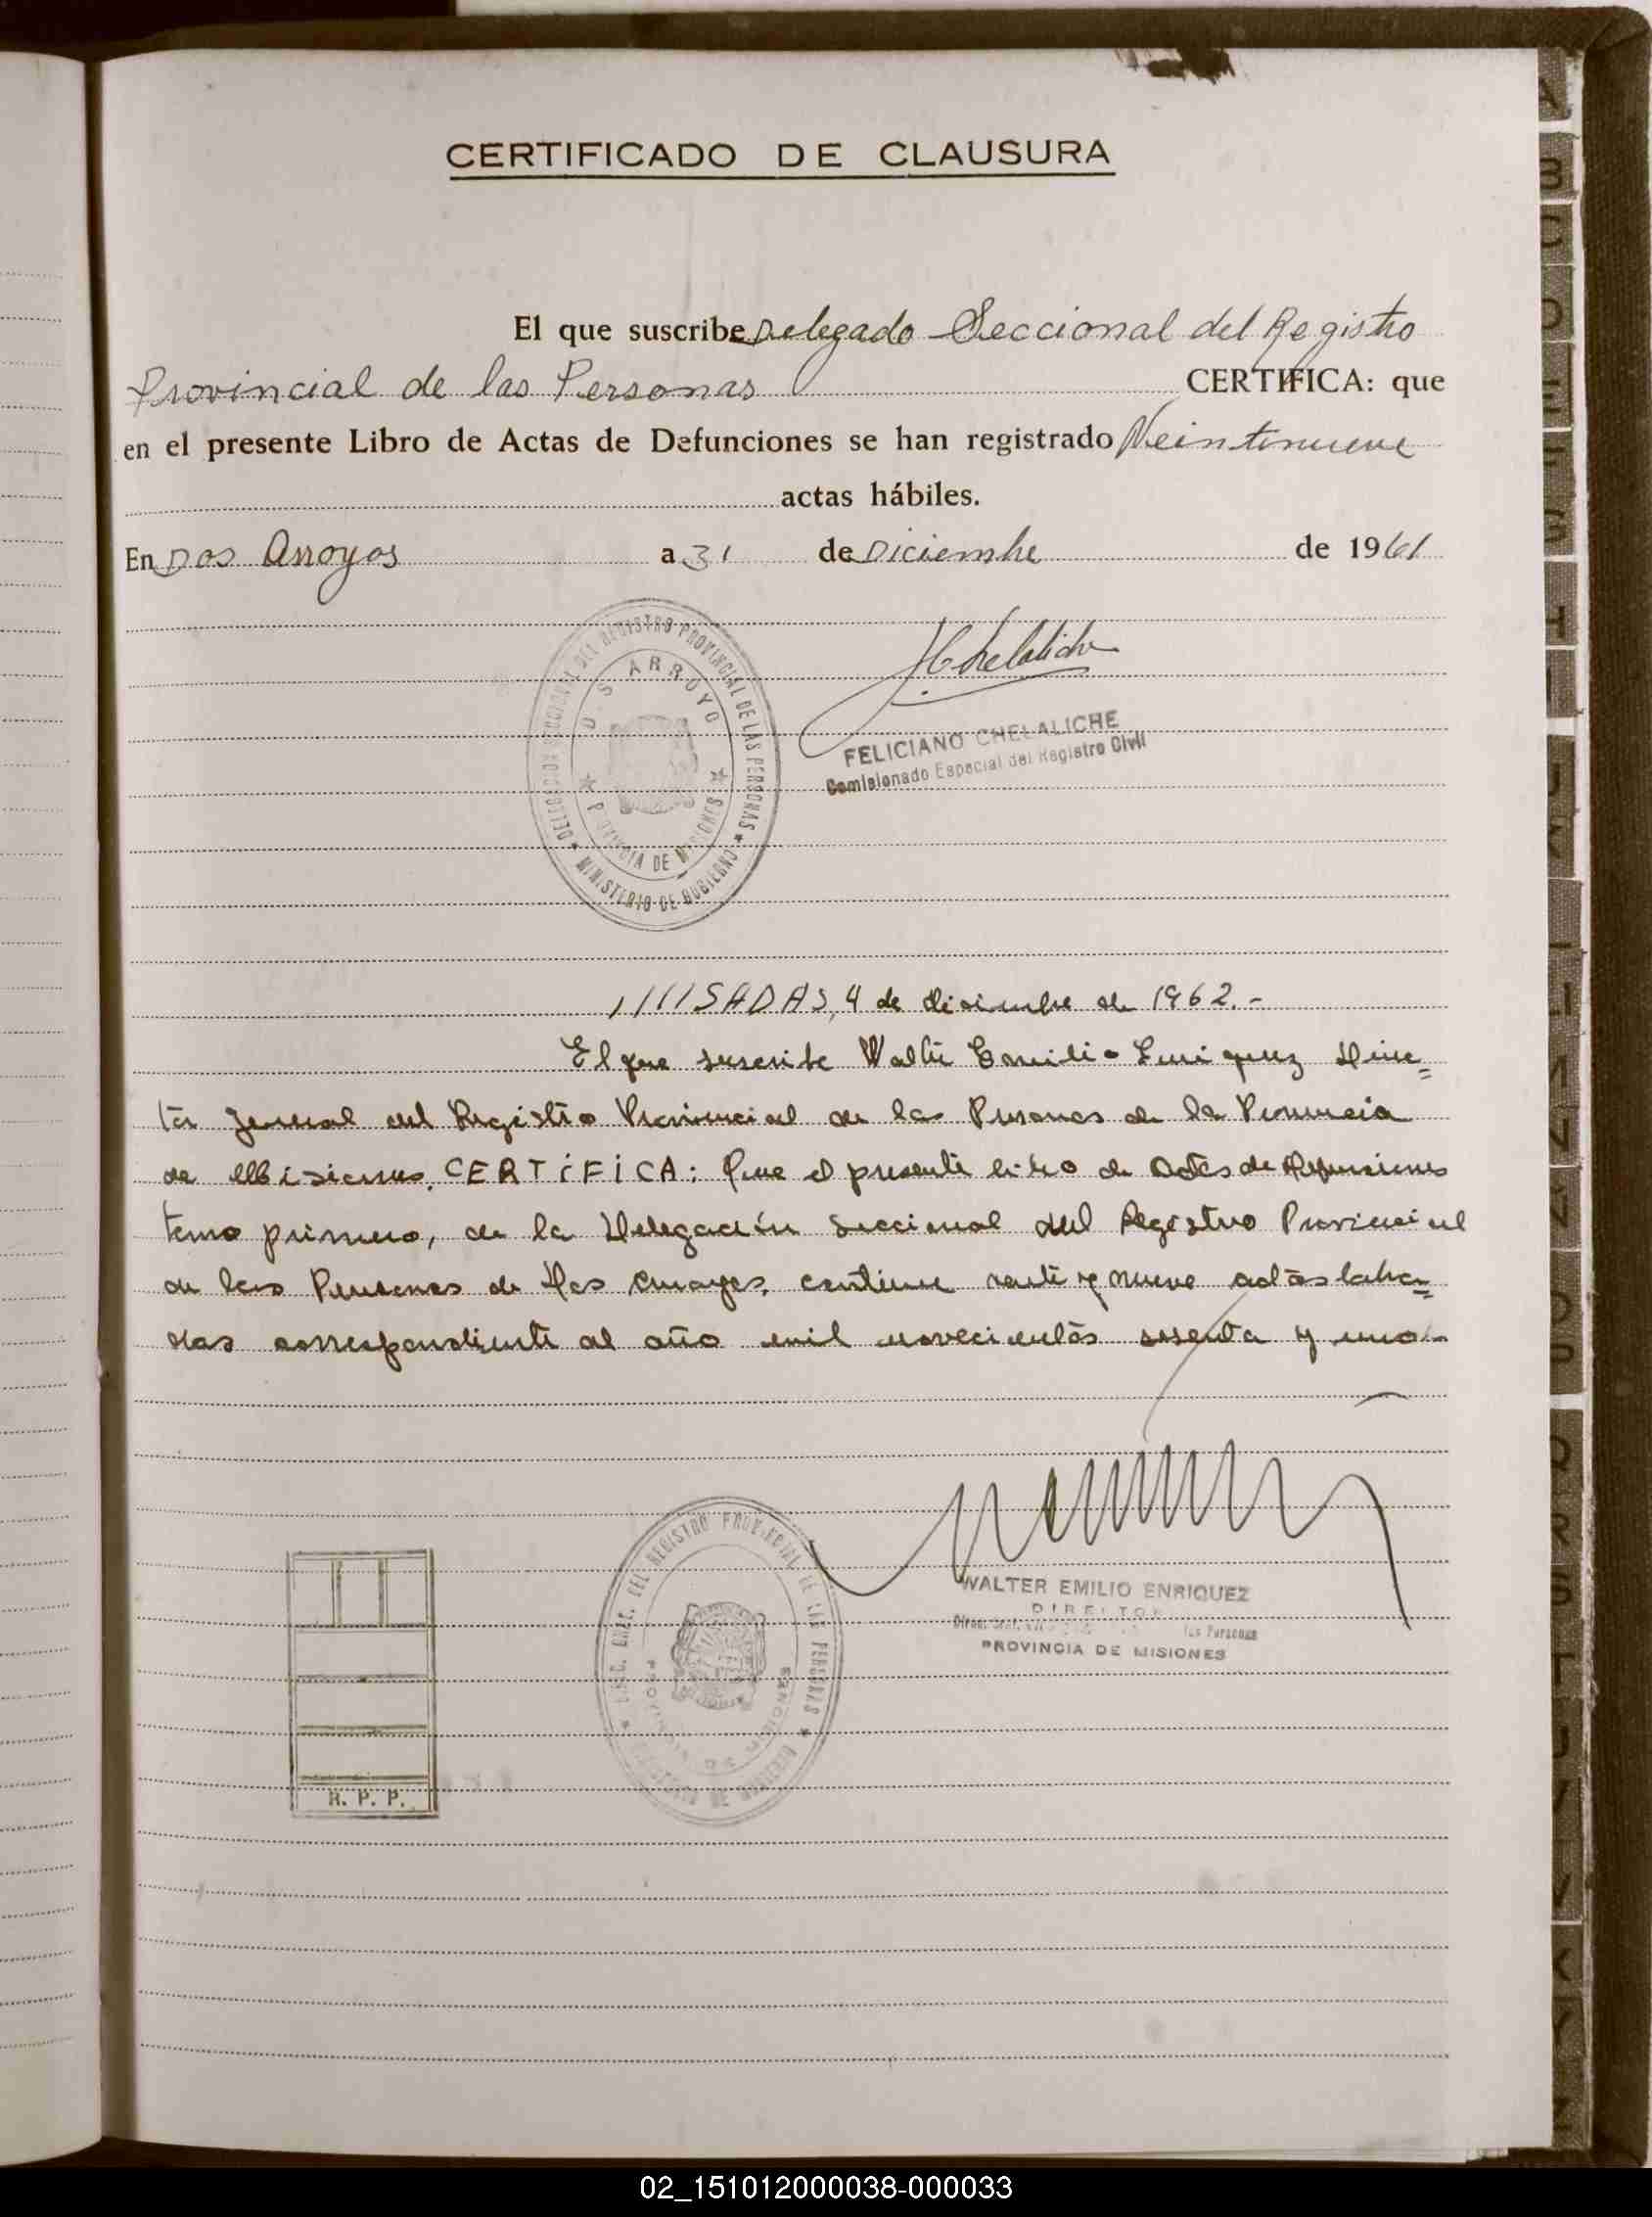 CERTIFICADO DE CLAUSURA
El que suscribe Delegado Seccional del Registro
Provincial de las Personas CERTIFICA: que
en el presente Libro de Actas de Defunciones se han registrado Veintinueve
actas hábiles.
En Dos Arroyos a 31 de Diciembre de 1961
DELEGACION SECCIONAL DEL REGISTRO PROVINCIAL DE LAS PERSONAS ★ MINISTERIO DE GOBIERNO ★
DOS ARROYOS
★ PROVINCIA DE MISIONES ★
FChelaliche
FELICIANO CHELALICHE
Comisionado Especial del Registro Civil
////SADAS, 4 de diciembre de 1962.-
El que suscribe Walter Emilio Enriquez Direc=
tor general del Registro Provincial de las Personas de la Provincia
de Misiones, CERTIFICA: Que el presente libro de Actas de Defunciones
tomo primero, de la Delegación Seccional del Registro Provincial
de las Personas de Dos Arroyos, contiene veinti y nueve actas labra=
das correspondiente al año mil novecientos sesenta y uno.-
WALTER EMILIO ENRIQUEZ
DIRECTOR
las Personas
PROVINCIA DE MISIONES
DEL REGISTRO PROVINCIAL DE LAS PERSONAS ★
PROVINCIA DE MISIONES
R. P. P.
A
B
C
D
E
F
G
H
I
J
K
L
M
N
Ñ
O
P
Q
R
S
T
U
V
X
Y
Z
02_151012000038-000033